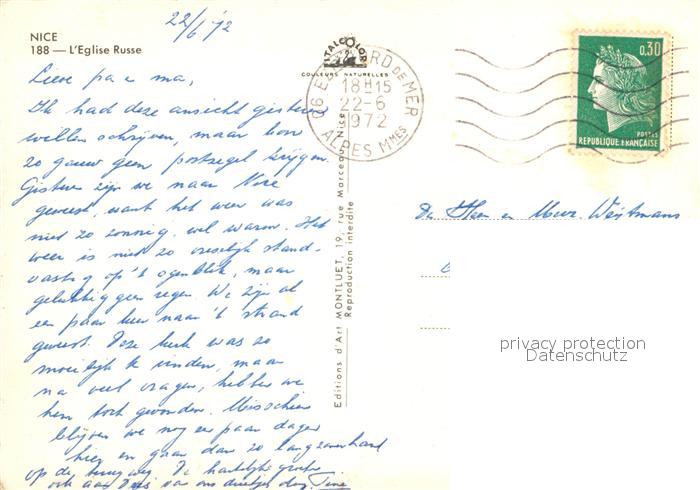 22/6/'72
NICE
188 — L'Eglise Russe
Lieve pa e ma,
Ik had deze ansicht gisteren
willen schrijven, maar kon
zo gauw geen postzegel krijgen.
Gisteren zijn we naar Nice
geweest, want het weer was
niet zo zonnig, wel warm. Het
weer is niet zo vreselijk stand-
vastig op 't ogenblik, maar
gelukkig geen regen. We zijn al
een paar keer naar 't strand
geweest. Deze kerk was zo
moeilijk te vinden, maar
na veel vragen, hebben we
hem toch gevonden. Misschien
blijven we nog een paar dagen
hier en gaan dan zo langzamerhand
op de terug weg. De hartelijke groeten
ook aan van ons drietjes dag Tine
ITALCOLOR
COULEURS NATURELLES
Editions d'Art MONTLUET, 19, rue Marceau, Nice
Reproduction interdite
06 MER
18H15
22-6
1972
ALPES MMES
0,30
POSTES
REPUBLIQUE FRANÇAISE
De Heer en Mevr. Weijtmans
privacy protection
Datenschutz